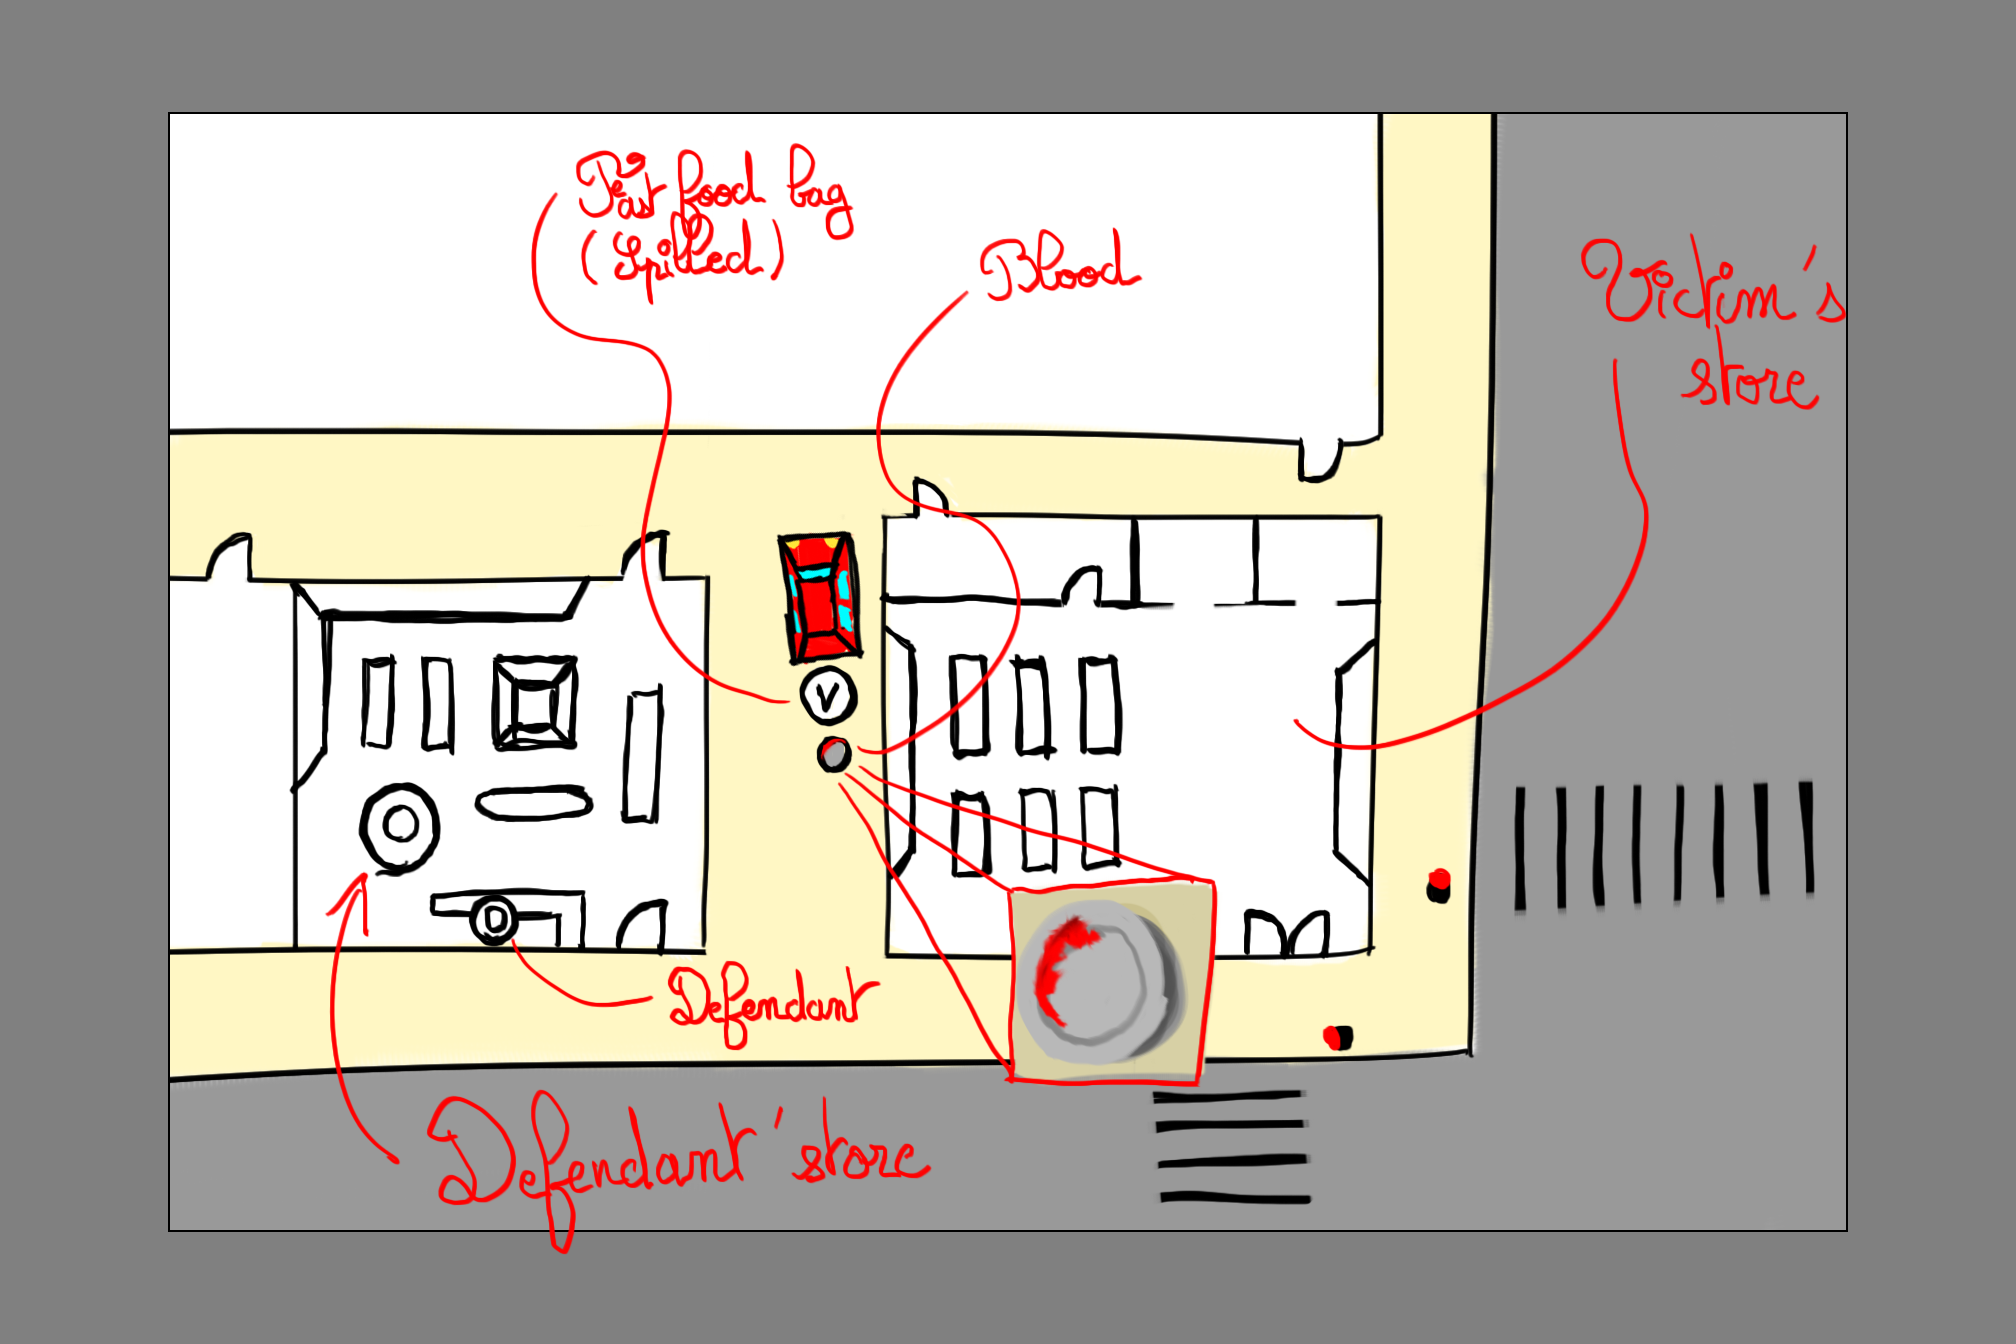 Fast food bag
(spilled)
Blood
Victim's
store
V
D
Defendant
Defendant 'store